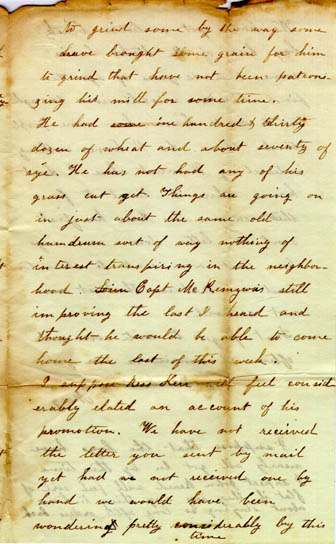 to grind some by the way some
have brought some grain for him
to grind that have not been patron
izing his mill for some time.
He had some one hundred & thirty
dozen of wheat and about seventy of
rye. He has not had any of his
grass cut yet. Things are going on
in just about the same old
humdrum sort of way nothing of
interest transpiring in the neighbor
hood. Capt Mc was still
improving the last I heard and
thought he would be able to come
home the last of this week.
I suppose Miss will feel consid
erably elated on account of his
promotion. We have not received
the letter you sent by mail
yet had we not received one by
hand we would have been
wondering pretty considerably by this
time